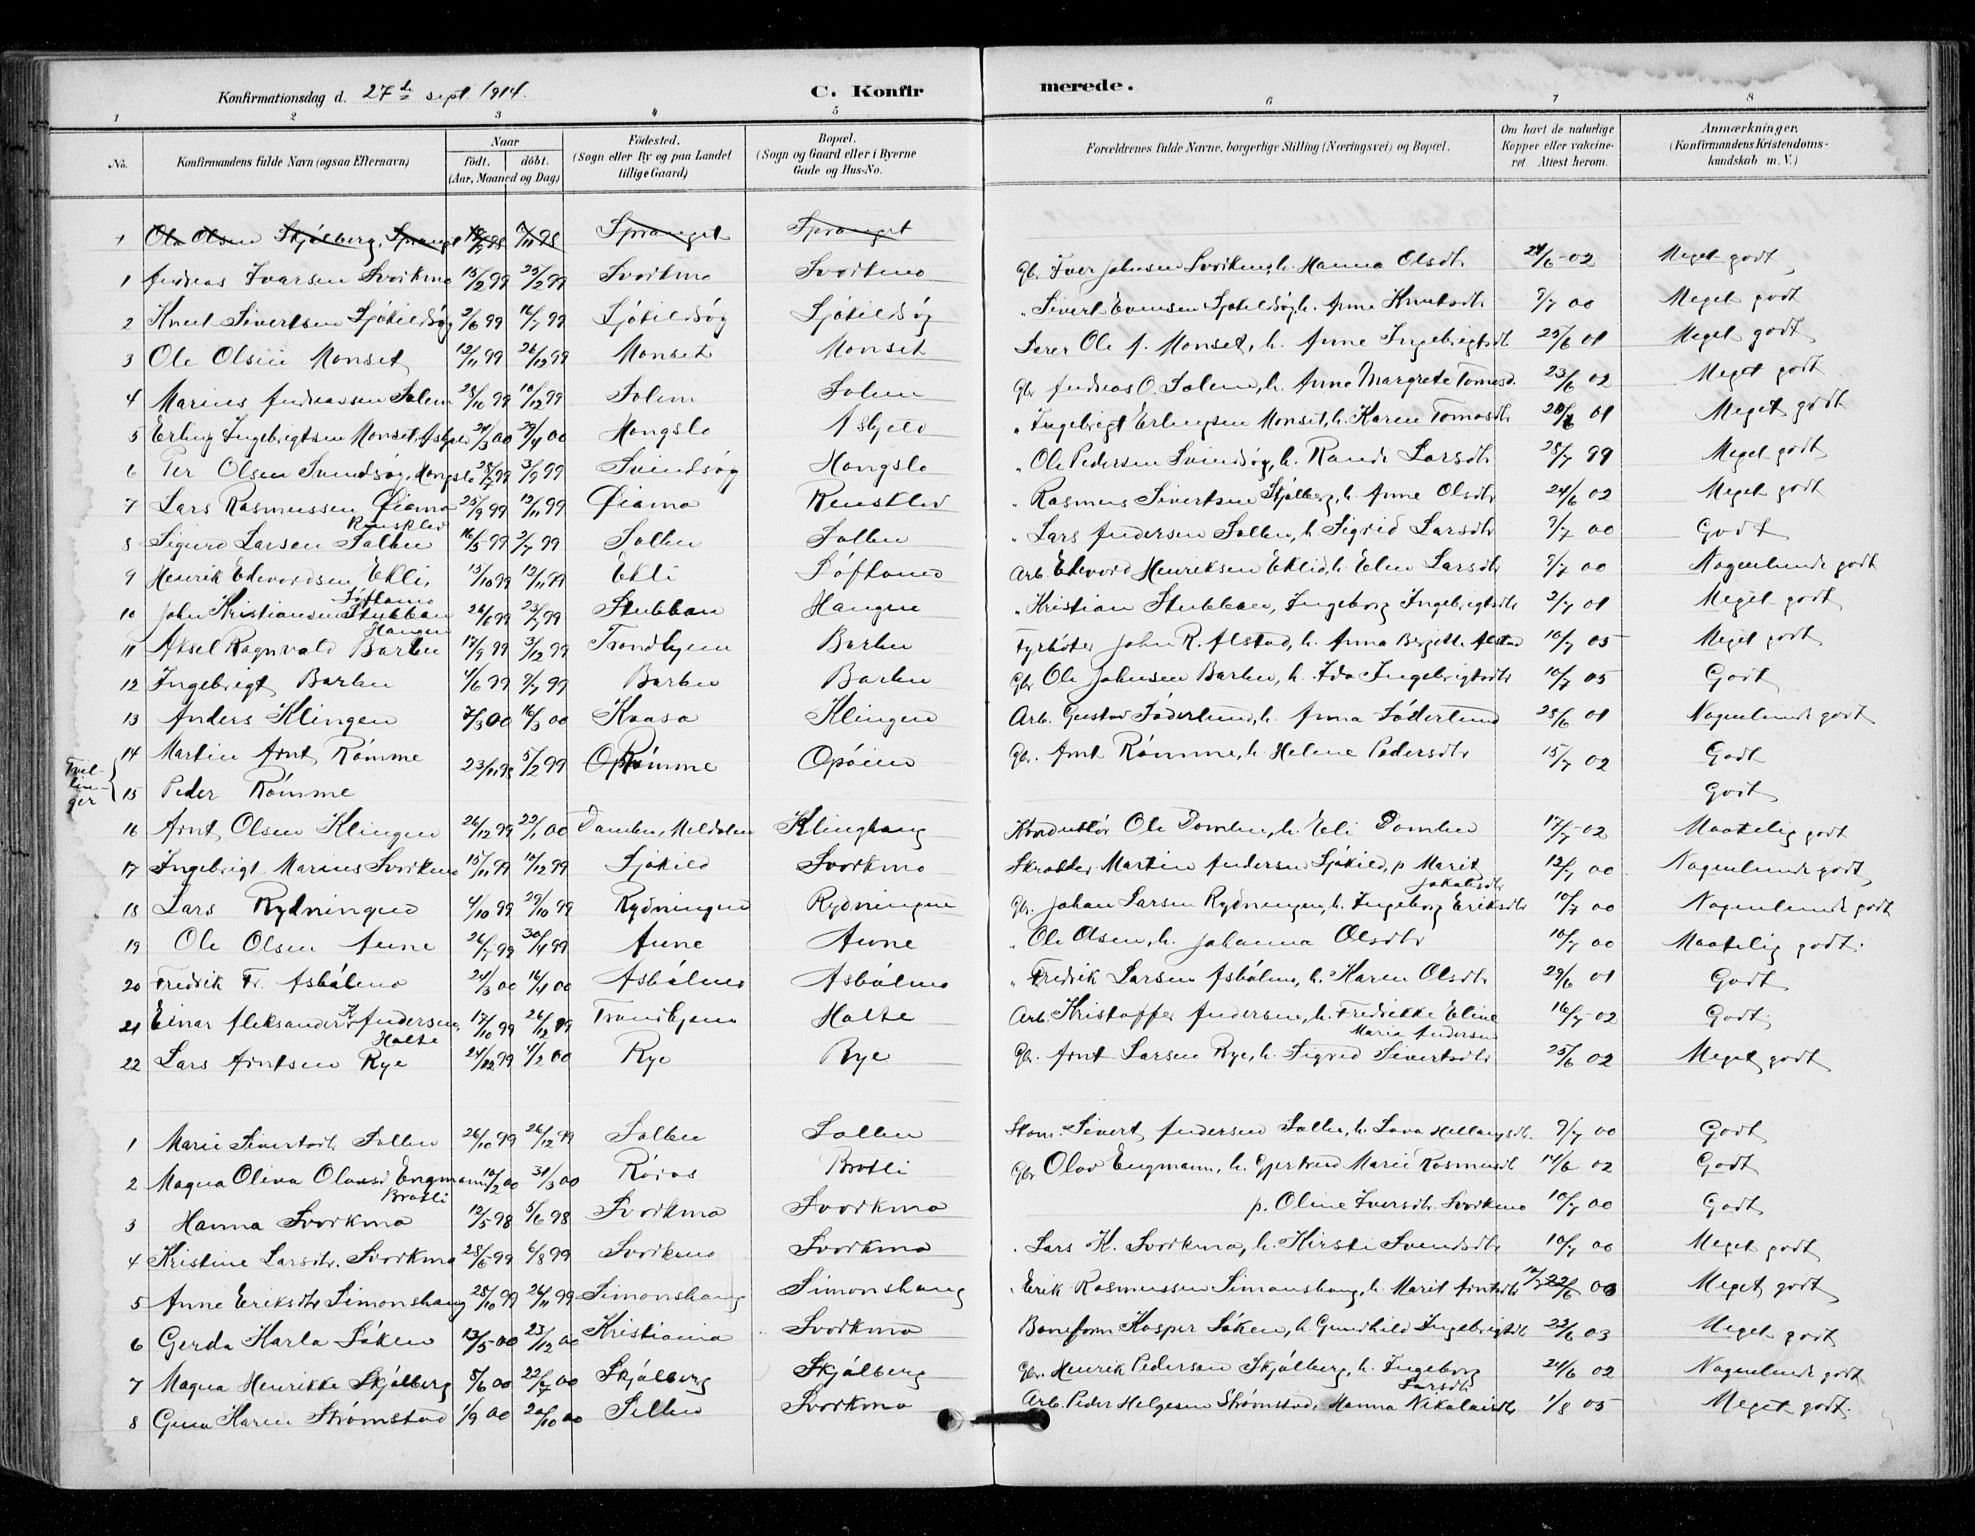 Konfirmationsdag d. 27de sept. 1914. C. Konfirmerede.
1 2 3 4 5 6 7 8
No. Konfirmandens fulde Navn (ogsaa Efternavn) Naar födt. döbt. (Aar, Maaned og Dag) Födested. (Sogn eller By og paa Landet tillige Gaard) Bopæl. (Sogn og Gaard eller i Byerne Gade og Hus-No. Forældrenes fulde Navne, borgerlige Stilling (Næringsvei) og Bopæl. Om havt de naturlige Kopper eller vakcineret. Attest herom. Anmærkninger, (Konfirmandens Kristendomskundskab m. V.)
1 Ole Olsen Skjölberg, Spranget Spranget Spranget
1 Andreas Ivarsen Svorkmo 15/2 99 25/2 99 Svorkmo Svorkmo Gbr. Iver Johnsen Svorkmo, h. Hanna Olsdtr 24/6 02 Meget godt
2 Knut Sivertsen Sjökildsög 2/6 99 16/7 99 Sjökildsög Sjökildsög " Sivert Evensen Sjökildsög, h. Anne Knutsdtr 9/7 00 Meget godt
3 Ole Olsen Monset 13/11 99 26/12 99 Monset Monset Lærer Ole A. Monset, h. Anne Ingebrigtsdtr 25/6 01 Meget godt
4 Marius Andreassen Solem 28/10 99 10/12 99 Solem Solem Gbr Andreas O. Solem, h. Anne Margrete Tomasd. 23/6 02 Meget godt
5 Erling Ingebrigtsen Monset, Asbjeld 21/3 00 29/4 00 Hongslo Asbjeld " Ingebrigt Erlingsen Monset, h. Karen Tomasdtr 01 Meget godt
6 Per Olsen Svindsög, Hongslo 28/7 99 3/9 99 Svindsög Hongslo " Ole Pedersen Svindsög, h. Randi Larsdtr 28/7 99 Meget godt
7 Lars Rasmussen Öiamo Rensklev 25/9 99 12/11 99 Öiamo Rensklev " Rasmus Sivertsen Skjölberg, h. Anne Olsdtr 24/6 02 Meget godt
8 Sigurd Larsen Solbu 16/5 99 2/7 99 Solbu Solbu " Lars Andersen Solbu, h. Sigrid Larsdtr 9/7 00 Godt
9 Henrik Edvardsen Ekli, Löftamo 13/10 99 13/11 99 Ekli Löftamo Arb. Edvard Henriksen Ekli, h. Elen Larsdtr 9/7 00 Nogenlunde godt
10 John Kristiansen Stubban Haugen 26/6 99 23/7 99 Stubban Haugen " Kristian Stubban, Ingeborg Ingebrigtsdtr 2/7 01 Meget godt
11 Aksel Ragnvald Barbu 17/9 99 3/12 99 Trondhjem Barbu Fyrböter John R. Alstad, h. Anna Bergitte Alstad 10/7 05 Meget godt
12 Ingebrigt Barbu 4/6 99 9/7 99 Barbu Barbu Gbr Ole Johnsen Barbu, h. Ida Ingebrigtsdtr 10/7 05 Godt
13 Anders Klingen 7/3 00 16/3 00 Kaasa Klingen Arb. Gustav Söderlund, h. Anna Söderlund 28/6 01 Nogenlunde godt
14 Martin Arnt Römme 23/11 98 5/2 99 Römme Opöien Gbr. Arnt Römme, h. Helene Pedersdtr 15/7 02 Godt
Tvillinger
15 Peder Römme Godt
16 Arnt Olsen Klingen 26/12 99 22/1 00 Dombu, Meldalen Klinghaug Konduktör Ole Dombu, h. Eli Dombu 17/7 02 Maatelig godt
17 Ingebrigt Marius Svorkmo 15/11 99 10/12 99 Sjökild Svorkmo Skrædder Martin Andersen Sjökild, p. Marit Jakobsdtr 12/7 00 Nogenlunde godt
18 Lars Rydningen 4/10 99 29/10 99 Rydningen Rydningen Gbr. Johan Larsen Rydningen, h. Ingeborg Eriksdtr 10/7 00 Nogenlunde godt
19 Ole Olsen Aune 26/7 99 Aune Aune " Ole Olsen, h. Johanna Olsdtr 10/7 00 Maatelig godt.
20 Fredrik Fr. Asbölmo 24/3 00 16/4 00 Asbölmo Asbölmo " Fredrik Larsen Asbölmo, h. Karen Olsdtr 29/6 01 Godt
21 Einar Aleksander K. Andersen, Holte 17/10 99 26/12 99 Trondhjem Holte Arb. Kristoffer Andersen, h. Fredrikke Eline Maria Andersen 16/7 02 Godt.
22 Lars Arntsen Rye 24/12 99 4/2 00 Rye Rye Gbr. Arnt Larsen Rye, h. Sigrid Sivertsdtr 25/6 02 Meget godt
1 Marie Sivertsdtr Solbu 26/10 99 26/12 99 Solbu Solbu Skom. Sivert Andersen Solbu, h. Lava 9/7 00 Godt
2 Magna Oliva Olavsd Engmann Bratli 10/2 00 31/3 00 Röros Bratli Gbr Olav Engmann, h. Gjertrud Marie Rasmusdtr 14/6 02 Godt
3 Hanna Svorkmo 12/5 98 5/6 98 Svorkmo Svorkmo p. Oline Iversdtr. Svorkmo 10/7 00 Godt
4 Kristine Larsdtr. Svorkmo 25/6 99 6/8 99 Svorkmo Svorkmo " Lars K. Svorkmo, h. Kirsti Svendsdtr 10/7 00 Meget godt
5 Anne Eriksdtr Simonshaug 28/10 99 26/11 99 Simonshaug Simonshaug " Erik Rasmussen Simonshaug, h. Marit Arntsdtr 22/6 00 Meget godt
6 Gerda Karla Söken 13/5 00 23/12 00 Kristiania Svorkmo Baneform Kasper Söken, h. Gunhild Ingebrigtdtr 22/6 03 Meget godt
7 Magna Henrikke Skjölberg 8/6 00 22/7 00 Skjölberg Skjölberg Gbr. Henrik Pedersen Skjölberg, h. Ingeborg Larsdtr 24/6 02 Nogenlunde godt
8 Gina Karen Strömstad 1/9 00 20/10 00 Svorkmo Arb. Peder Helgesen Strömstad, Hanna Nikolaisdtr 1/8 05 Meget godt.